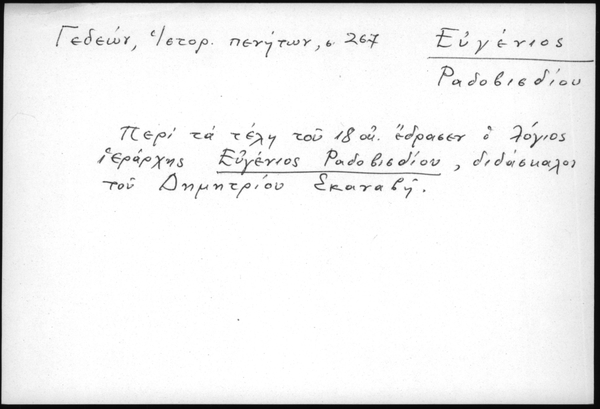 Γεδεών, Ἱστορ. πενήτων, σ 267
Εὐγένιος
Ραδοβισδίου
Περί τά τέλη τοῦ 18 αἰ. ἔδρασεν ὁ λόγιος
ἱεράρχης Εὐγένιος Ραδοβισδίου, διδάσκαλος
τοῦ Δημητρίου Σκαναβῆ.